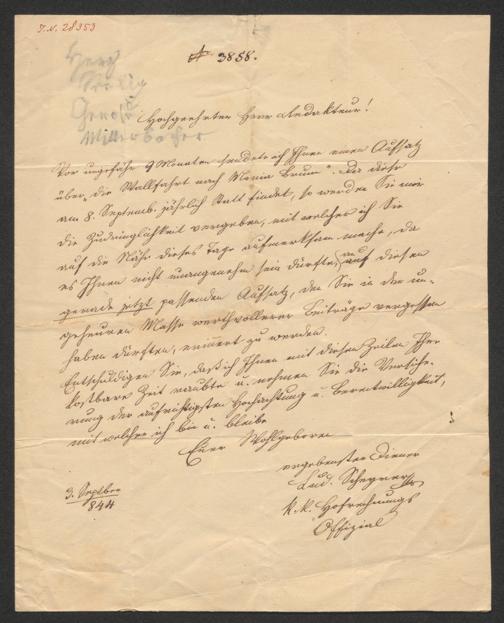 I.N. 28353
№ 3858.
Hochgeehrter Herr Redakteur!
Vor ungefähr 9 Monaten sendete ich Ihnen einen Aufsatz
über „die Wallfahrt nach Maria Brunn“. Da diese
am 8. Septemb. jährlich Statt findet, so werden Sie mir
die Zudringlichkeit vergeben, mit welcher ich Sie
auf die Nähe dieses Tages aufmerksam mache, da
es Ihnen nicht unangenehm sein dürfte, auf diesen
gerade jetzt passenden Aufsatz, den Sie in der un-
geheuren Masse werthvollerer Beiträge vergessen
haben dürften, erinnert zu werden.
Entschuldigen Sie, daß ich Ihnen mit diesen Zeilen Ihre
kostbare Zeit raubte u. nehmen Sie die Versiche-
rung der aufrichtigsten Hochachtung u. Bereitwilligkeit,
mit welcher ich bin u. bleibe
Euer Wohlgeboren
ergebenster Diener
Lud.
k. k. Hofrechnungs
Offizial
3. Septber
844